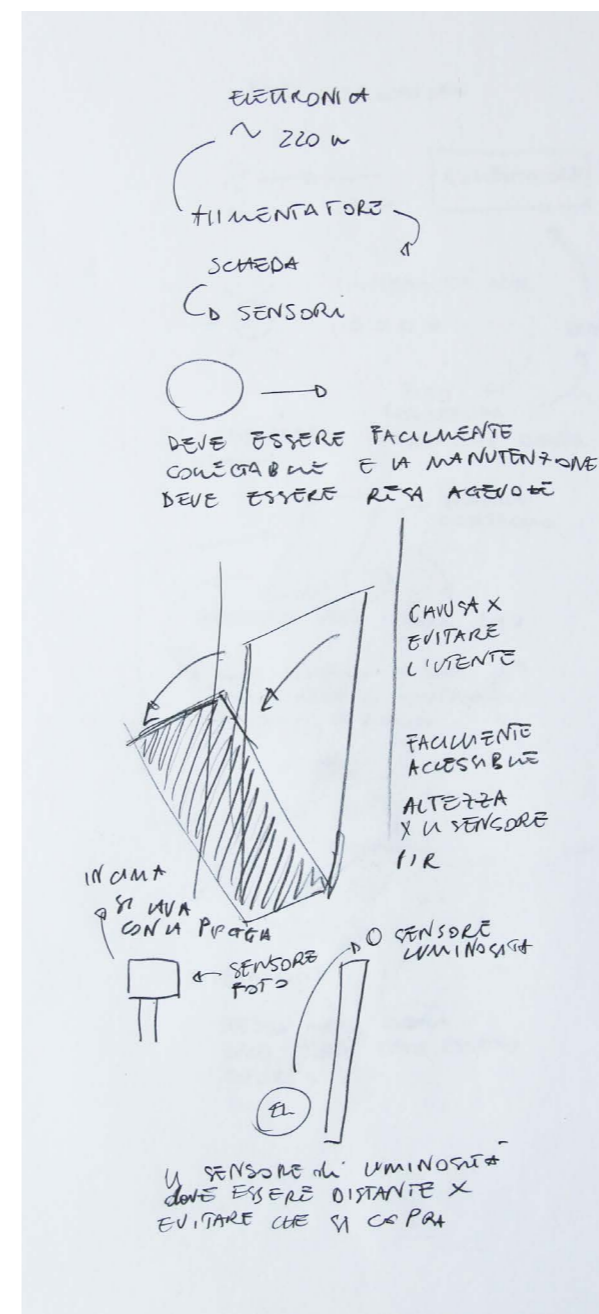 ELETTRONICA
~ 220 W
ALIMENTATORE
SCHEDA
SENSORI
DEVE ESSERE FACILMENTE
COLLEGABILE E LA MANUTENZIONE
DEVE ESSERE RESA AGEVOLE
CHIUSA X
EVITARE
L'UTENTE
FACILMENTE
ACCESSIBILE
ALTEZZA
X IL SENSORE
PIR
IN CIMA
SI LAVA
CON LA PIOGGIA
SENSORE
FOTO
SENSORE
LUMINOSITÀ
EL
IL SENSORE di LUMINOSITÀ
dovE ESSERE DISTANTE X
EVITARE CHE SI COPRA